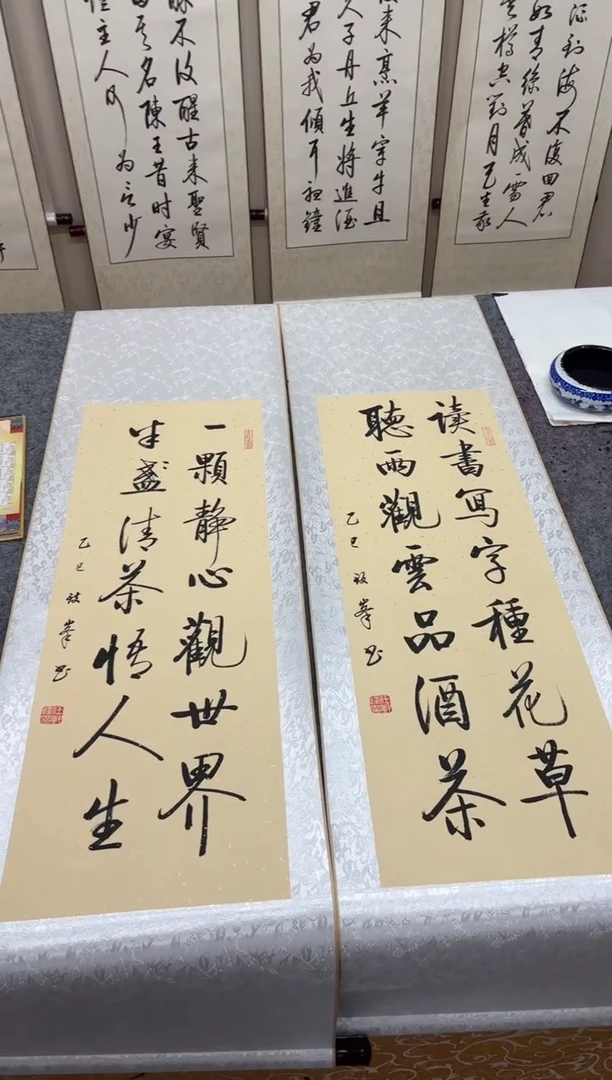 流到海不復回君
如青絲暮成雪人
樽空對月天生我
來烹羊宰牛且
人子丹丘生將進酒
君為我傾耳聽鐘
不復醒古來聖賢
其名陳王昔時宴
主人何為言少
读書写字種花草
聽雨觀雲品酒茶
乙巳 峯書
一顆靜心觀世界
半盞清茶悟人生
乙巳 峯書